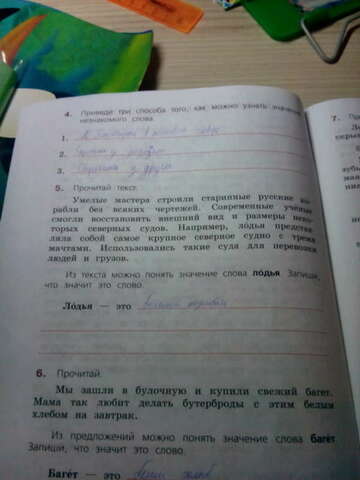 4. Приведи три способа того, как можно узнать значение
незнакомого слова.
1.
2. Спросить у
3. Спросить у друга
5. Прочитай текст.
Умелые мастера строили старинные русские ко-
рабли без всяких чертежей. Современные учёные
смогли восстановить внешний вид и размеры неко-
торых северных судов. Например, ло́дьи представ-
ляла собой самое крупное северное судно с тремя
мачтами. Использовались такие суда для перевозки
людей и грузов.
Из текста можно понять значение слова ло́дья. Запиши,
что значит это слово.
Ло́дья — это
6. Прочитай.
Мы зашли в булочную и купили свежий багет.
Мама так любит делать бутерброды с этим белым
хлебом на завтрак.
Из предложений можно понять значение слова баге́т.
Запиши, что значит это слово.
Баге́т — это белый хлеб
7.